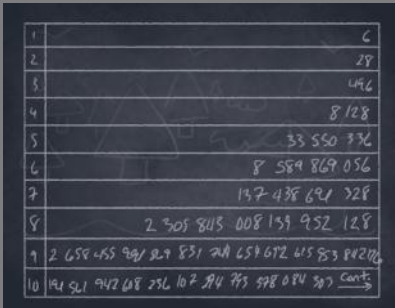 1 6
2 28
3 496
4 8 128
5 33 550 336
6 8 589 869 056
7 137 438 691 328
8 2 305 843 008 139 952 128
9 2 658 455 991 569 831 744 654 692 615 953 842 176
10 191 561 942 608 236 107 294 793 378 084 303 Cont. →